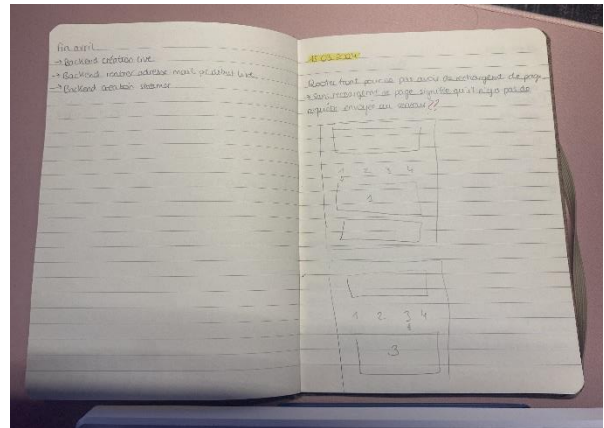 Fin avril
→ Backend création live
→ Backend rentrer adresse mail
→ Backend création streamer
2024
front pour ne pas avoir de rechargement de page
→ Sans rechargement de page signifie qu'il n'y a pas de
requête envoyée au serveur??
1 2 3 4
1
1 2 3 4
3